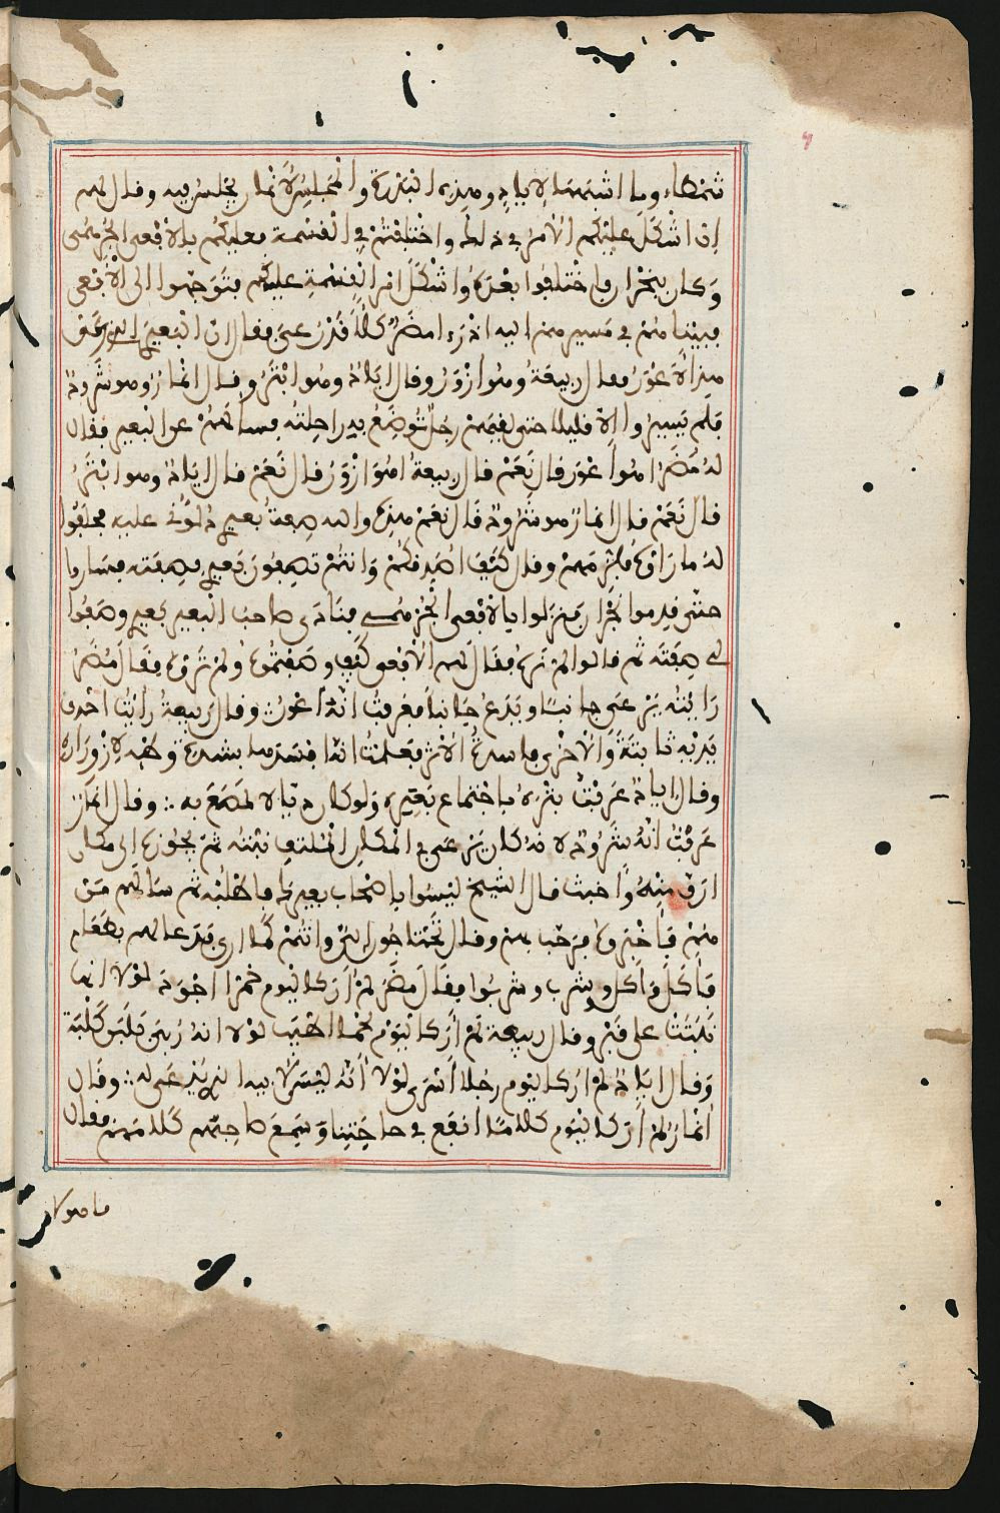 شمطاء وما اشبهها لاياد وهذه البدرة والمجلس لانمار يجلس فيه وقال لهم
ان اشكل عليكم الامر في ذلك واختلفتم في القسمة فعليكم بالافعى الجرهمي
وكان بنجران فاختلفوا بعده واشكل امر القسمة عليهم فتوجهوا الى الافعى
فبينما هم في مسيرهم اليه اذ رءا مضر كلأ قد رعي فقال ان البعير الذي رعى
هذا لأعور فقال ربيعة وهو ازور وقال اياد وهو ابتر وقال انمار وهو شرود
فلم يسيروا الا قليلا حتى لقيهم رجل توضع به راحلته فسألهم عن البعير فقال
له مضر اهو اعور قال نعم قال ربيعة اهو ازور قال نعم قال اياد وهو ابتر
قال نعم قال انمار هو شرود قال نعم هذه والله صفة بعيري دلوني عليه فحلفوا
له ما راوه فلزمهم وقال كيف اصدقكم وانتم تصفون بعيري بصفته فساروا
حتى قدموا نجران فنزلوا بالافعى الجرهمي فنادى صاحب البعير بعيري وصفوا
لي صفته ثم قالوا لم نره فقال لهم الافعى كيف وصفتموه ولم تروه فقال مضر
رايته يرعى جانبا ويدع جانبا فعرفت انه اعور وقال ربيعة رايت احدى
يديه ثابتة والاخرى فاسدة الاثر فعلمت انه افسدها بشدة وطئه لازوراره
وقال اياد عرفت بتره باجتماع بعره ولو كان ذيالا لمصع به وقال انمار
عرفت انه شرود لانه كان يرعى في المكان الملتف نبته ثم يجوزه الى مكان
ارق منه واخبث قال الشيخ ليسوا باصحاب بعيرك فاطلبه ثم سالهم من
هم فاخبروه فرحب بهم وقال تحتاجون الي وانتم كما ارى فدعا لهم بطعام
فأكل واكلوا وشرب وشربوا فقال مضر لم أر كاليوم خمرا اجود لولا انها
نبتت على قبر وقال ربيعة لم أر كاليوم لحما اطيب لولا انه ربي بلبن كلبة
وقال اياد لم ار كاليوم رجلا أسرى لولا أنه ليس لابيه الذي يدعى له وقال
انمار لم أر كاليوم كلاما انفع في حاجتنا وسمع صاحبهم كلامهم فقال
ما هولا